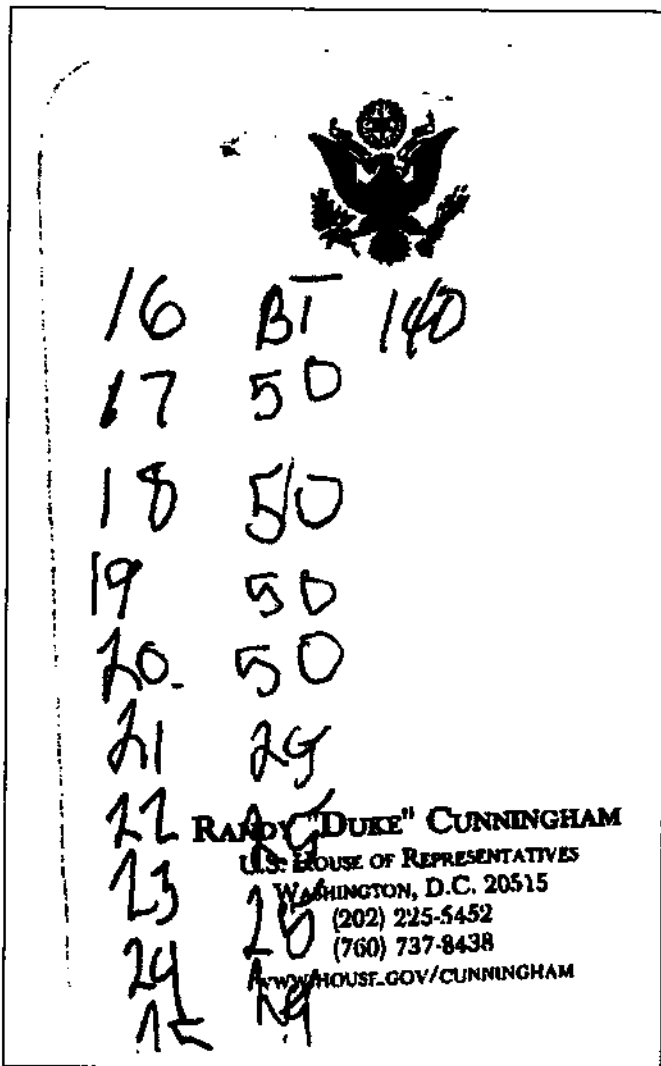 16 BT 140
17 50
18 50
19 50
20 50
21 25
22 25
RANDY "DUKE" CUNNINGHAM
U.S. HOUSE OF REPRESENTATIVES
23 25
WASHINGTON, D.C. 20515
(202) 225-5452
(760) 737-8438
24 25
WWW.HOUSE.GOV/CUNNINGHAM
25